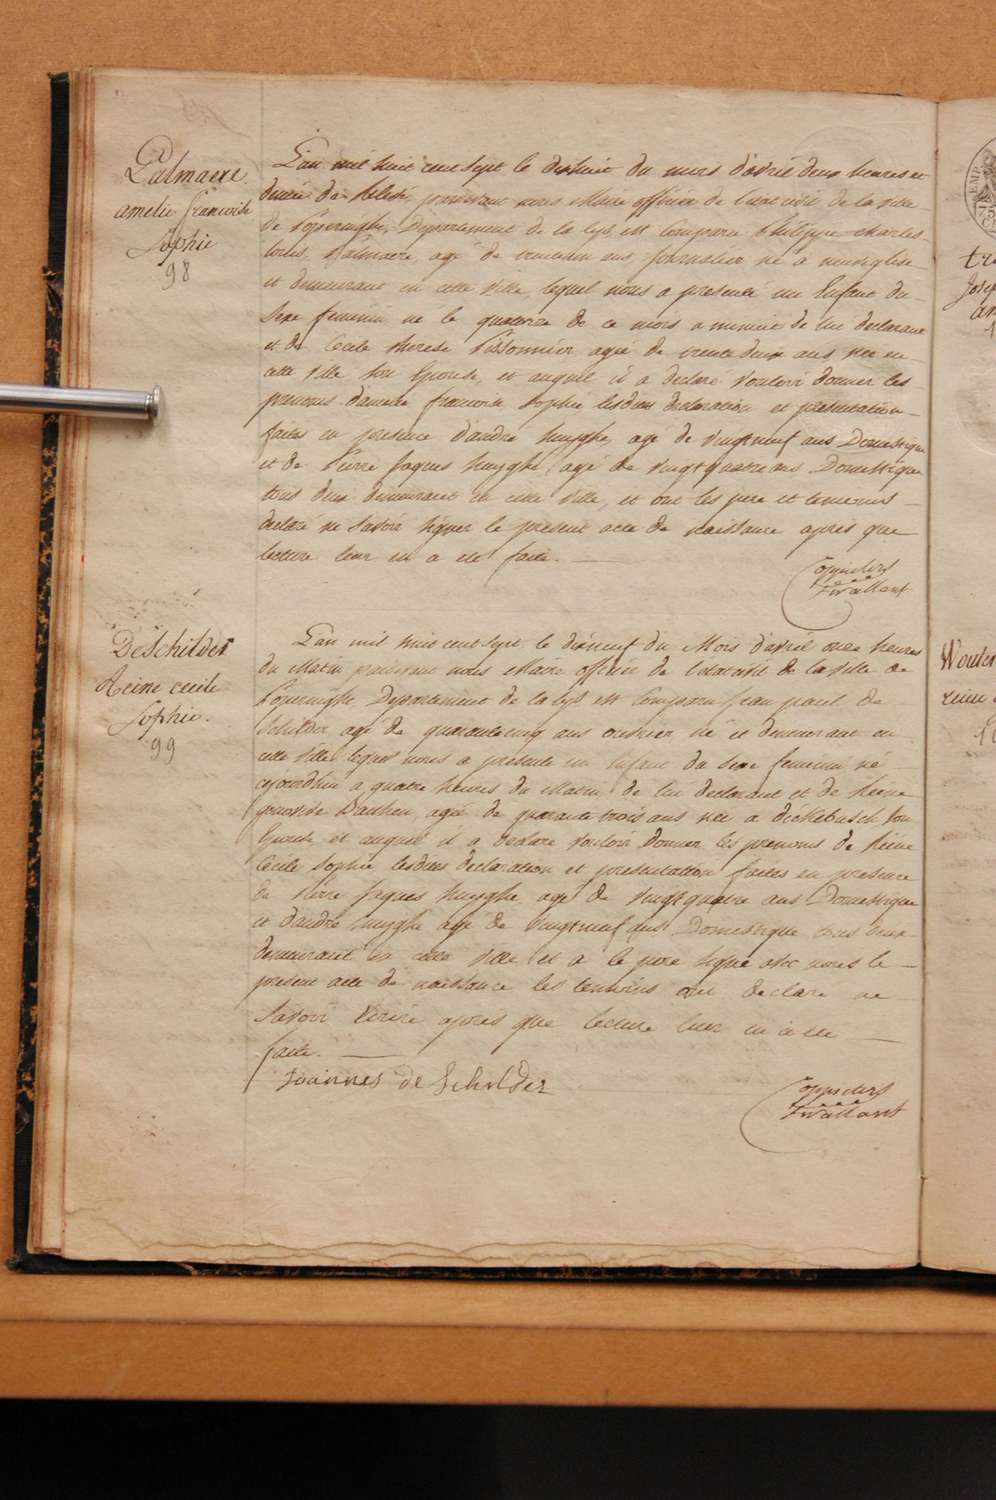 Palmaere
amelie francoise
Sophie
98
L'an mil huit cent sept le dixhuit du mois d'avril deux heures et
demie de Relevé, pardevant nous Maire officier de l'etat civil de la ville
de Poperinghe, Departement de la Lys est Comparu Philippe charles
Louis Palmaere, agé de ans Journalier né a neuveglise
et demeurant en cette ville, lequel nous a presenté un Enfant du
Sexe feminin né le quatorze de ce mois a minuit de lui declarant
et de Cecile therese Pissonnier agée de trente deux ans née en
cette ville son Epouse, et auquel il a declaré vouloir donner les
prenoms d'amelie francoise Sophie lesdites declaration et presentation
faites en presence d'andre huyghe, agé de vingtneuf ans Domestique
et de Pierre Jaques huyghe, agé de vingtquatre ans Domestique
tous deux demeurant en cette ville, et ont les pere et temoins
declaré ne Savoir signer le present acte de naissance apres que
lecture leur en a été faite.
DeSchilder
Reine cecile
Sophie.
99
L'an mil huit cent sept le dixneuf du Mois d'avril onze heures
du Matin pardevant nous Maire officier de l'etat civil de la Ville de
Poperinghe Departement de la Lys est Comparu Jean paul de
Schilder agé de quarantecinq ans ouvrier né et demeurant en
cette ville lequel nous a presenté un Enfant du sexe feminin né
cejourdhui a quatre heures du Matin de lui declarant et de Reine
agée de quarante trois ans née a dickebusch son
Epouse et auquel il a declaré vouloir donner les prenoms de Reine
Cecile Sophie lesdites declaration et presentation faites en presence
de Pierre Jaques huyghe agé de vingtquatre ans Domestique
et d'andre huyghe agé de vingtneuf ans Domestique tous deux
demeurant en cette ville et a le pere signé avec nous le
present acte de naissance les temoins ont declaré ne
Savoir Ecrire apres que lecture leur en a été
faite.
Joannes de Schilder